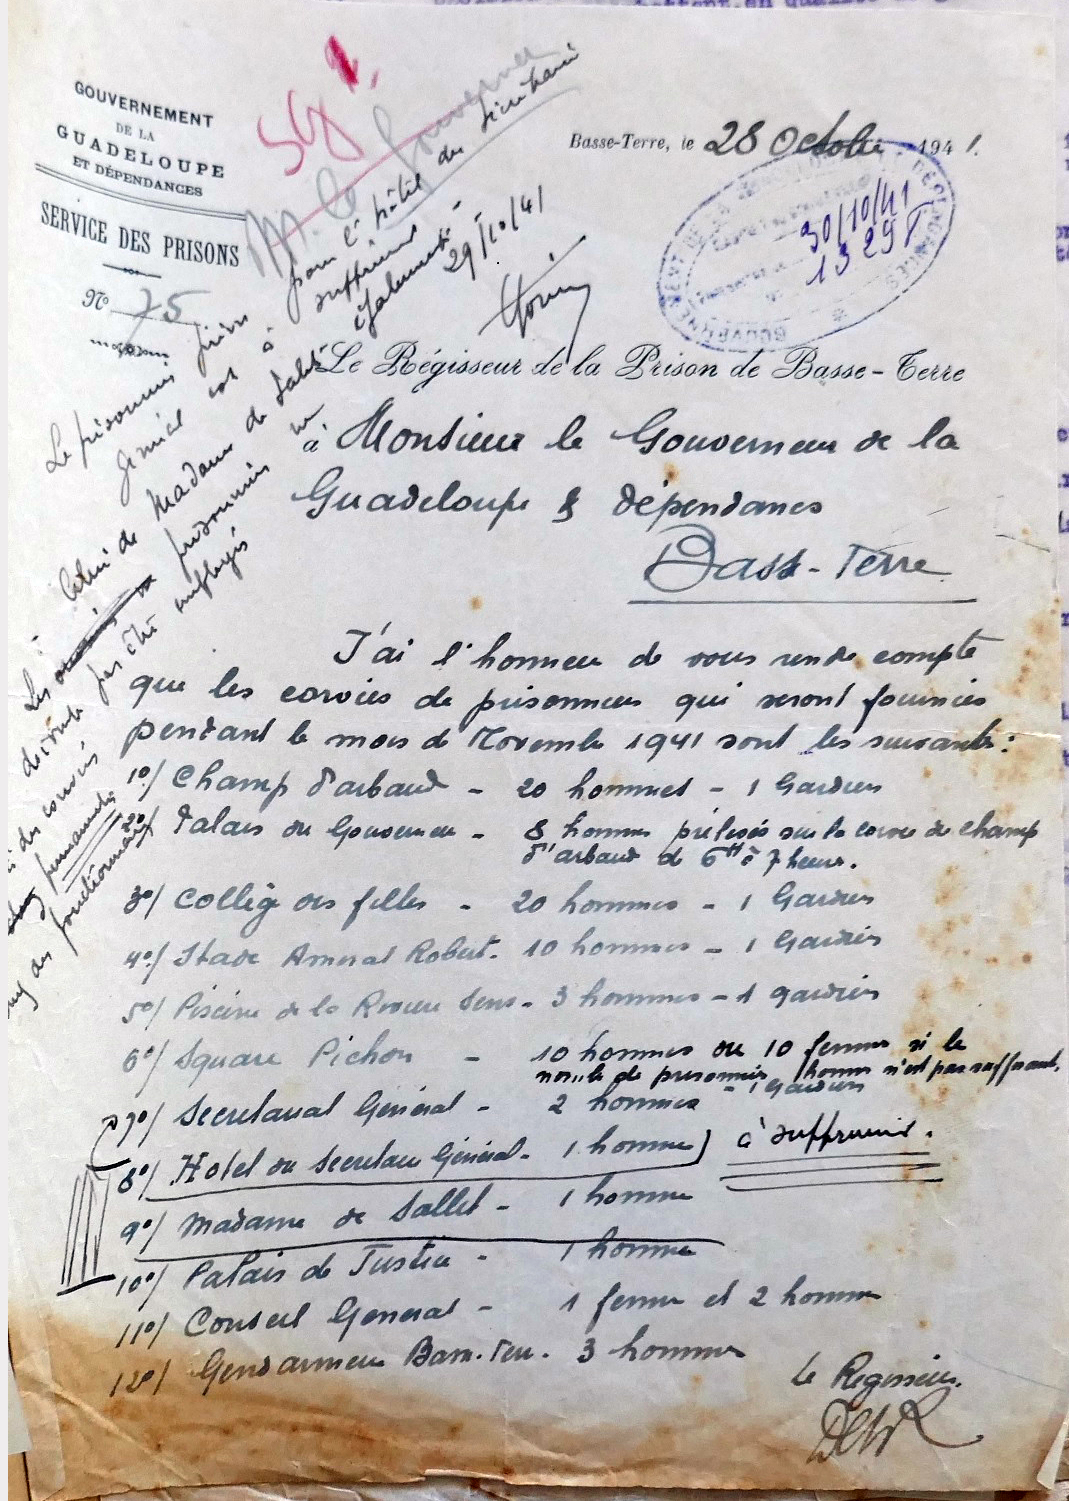 GOUVERNEMENT
DE LA
GUADELOUPE
ET DÉPENDANCES
SERVICE DES PRISONS
N° 75
SG 1.
M. le Gouverneur
Basse-Terre, le 28 Octobre 1941.
30/10/41
1329
Le prisonnier prévu
pour l'hôtel du Secrétariat
Général est à supprimer
Celui de Madame de Sallet également.
29/10/41
Les prisonniers ne
doivent pas être employés
des corvées
permanentes
des fonctionnaires
Le Régisseur de la Prison de Basse-Terre
à Monsieur le Gouverneur de la
Guadeloupe & dépendances
Basse-Terre
J'ai l'honneur de vous rendre compte
que les corvées de prisonniers qui seront fournies
pendant le mois de Novembre 1941 sont les suivantes :
1°/ Champ d'arbaud - 20 hommes - 1 Gardien
2°/ Palais du Gouverneur - 8 hommes prélevés sur la corvée de champ
d'arbaud de 6H à 7 heures.
3°/ Collège des filles - 20 hommes - 1 Gardien
4°/ Stade Amiral Robert - 10 hommes - 1 Gardien
5°/ Piscine de la Rivière Sens - 3 hommes - 1 gardien
6°/ Square Pichon - 10 hommes ou 10 femmes si le
nombre de prisonniers hommes n'est pas suffisant,
- 1 Gardien
7°/ Secrétariat Général - 2 hommes
8°/ Hotel du Secrétaire Général - 1 homme) à supprimer.
9°/ Madame de Sallet - 1 homme
10°/ Palais de Justice - 1 homme
11°/ Conseil General - 1 femme et 2 hommes
12°/ Gendarmerie Basse-Terre - 3 hommes
Le Regisseur.